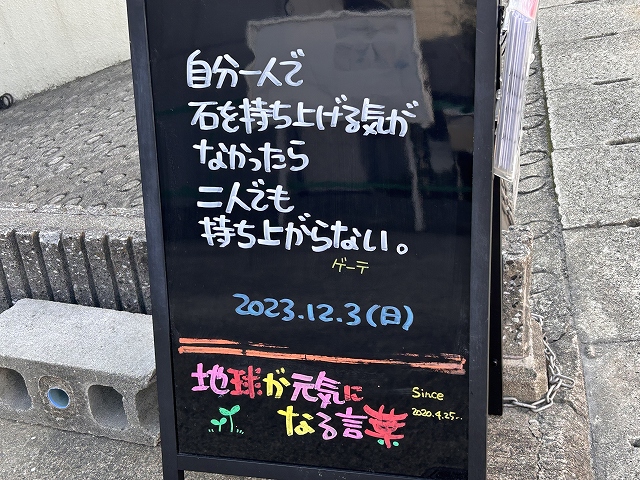 自分一人で
石を持ち上げる気が
なかったら
二人でも
持ち上がらない。
ゲーテ
2023.12.3(日)
地球が元気に
なる言葉
Since
2020.4.25~.